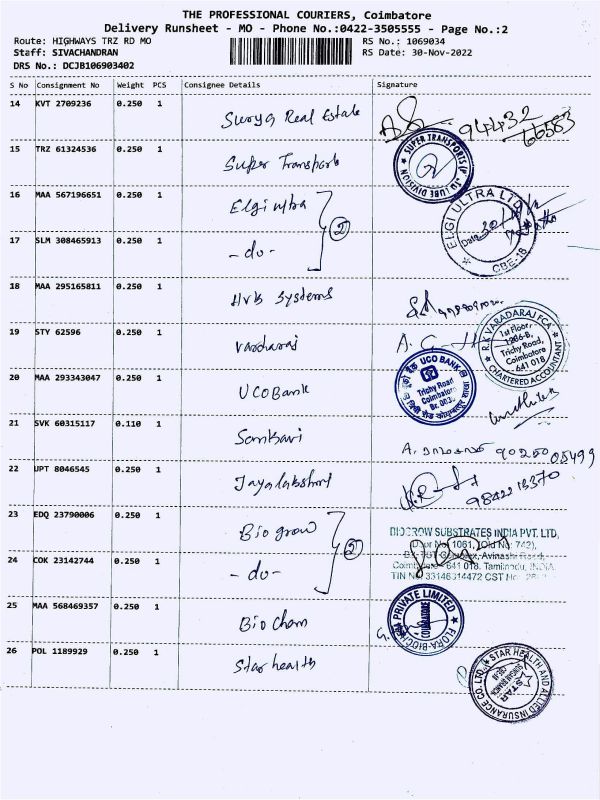 THE PROFESSIONAL COURIERS, Coimbatore
Delivery Runsheet - MO - Phone No.:0422-3505555 - Page No.:2
Route: HIGHWAYS TRZ RD MO RS No.: 1069034
Staff: SIVACHANDRAN RS Date: 30-Nov-2022
DRS No.: DCJB106903402
S No Consignment No Weight PCS Consignee Details Signature
14 KVT 2709236 0.250 1 Surya Real Estate 94432
66583
15 TRZ 61324536 0.250 1 Super Transports SUPER TRANSPORTS
16 MAA 567196651 0.250 1 Elgi ultra 2 ELGI ULTRA LTD
Date CBE-18
17 SLM 308465913 0.250 1 - do -
18 MAA 295165811 0.250 1 Hvk Systems
19 STY 62596 0.250 1 Vardaraj R.K VARADARAJ FCA
1st Floor,
1206-B,
Trichy Road,
Coimbatore
641 018
CHARTERED ACCOUNTANT
20 MAA 293343047 0.250 1 UCO Bank UCO BANK
Trichy Road
Coimbatore
Br. 003
21 SVK 60315117 0.110 1 Sankari
22 UPT 8046545 0.250 1 Jayalakshmi 9842213370
23 EDQ 23790006 0.250 1 Bio grow 2 BIOGROW SUBSTRATES INDIA PVT. LTD,
Door No: 1061, (Old No: 742),
Avinashi Road,
Coimbatore - 641 018. Tamilnadu, INDIA.
TIN No 33146314472 CST No:
24 COK 23142744 0.250 1 - do -
25 MAA 568469357 0.250 1 Bio Cham PRIVATE LIMITED
COIMBATORE
26 POL 1189929 0.250 1 Star health STAR HEALTH AND ALLIED INSURANCE CO. LTD.
STAR